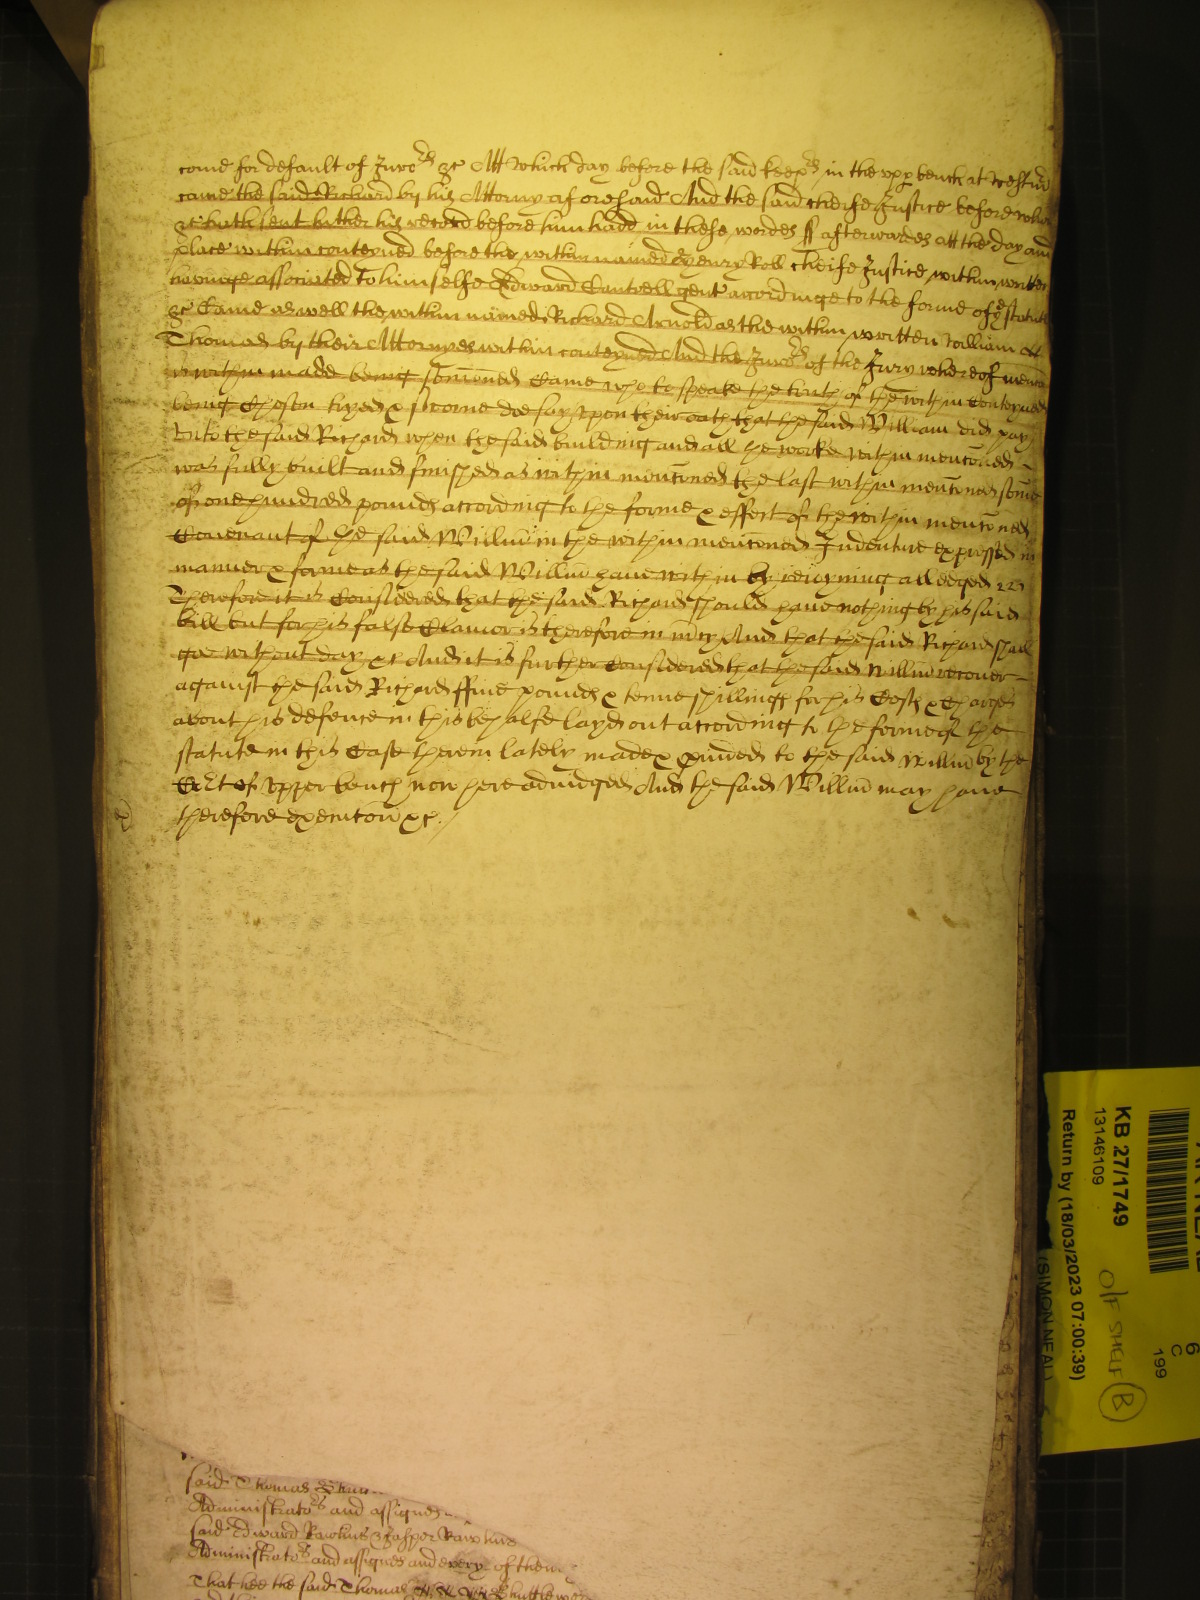 come for default of Juro:rs &c Att which day before the said keep:rs in the upp bench at Westm̄
came the said Richard by his Attorny aforesaid And the said cheife Justice before whom
&c hath sent hither his record before him hadd in these wordes ss afterwardes att the day and
place within conteyned before the within named Henry Roll cheife Justice within written
haveinge associated to himselfe Edward Cantwell gent accordinge to the forme of ye statute
&c Came aswell the within named Richard Arnold as the within written William &
Thomas by their Attornyes within conteyned And the Juro:rs of the Jury whereof mencon
is within made being sum̄oned Came who to speake the truth of the within Conteyned
being Chosen tryed & sworne doe say upon their oath that the said William did pay
unto the said Richard when the said building and all the worke within menc̄oned
was fully built and finished as within menc̄oned the last within menc̄oned som̄e
of one hundred pounds according to the forme & effect of the within menc̄oned
Covenant of the said Willm̄ in the within menc̄oned Indenture expressed in
manner & forme as the said Willm̄ have within by rejoyning alledged
Therefore it is Considered that the said Richard should have nothing by his said
bill but for his false Clamor is therefore in m̄cy And that the said Richard shall
goe without day &c And it is further Considered that the said Willm̄ recover
against the said Richard ffive pounds & tenne shillings for his Costs & Charges
about his defence in this behalfe layd out according to the forme of the
statute in this Case therein lately made & provided to the said Willm̄ by the
Co:rt of upper bench now here adjudged And the said Willm̄ may have
therefore execuc̄on &c.
said Thomas
Administrato:rs and assignes
said Edward Rawlins & Jasper Rawlins
Administrato:rs and assignes and every of them
That hee the said Thomas
KB 27/1749
13146109
Return by (18/03/2023 07:00:39)
(SIMON NEAL)
O/F SHELF B
6
C
199